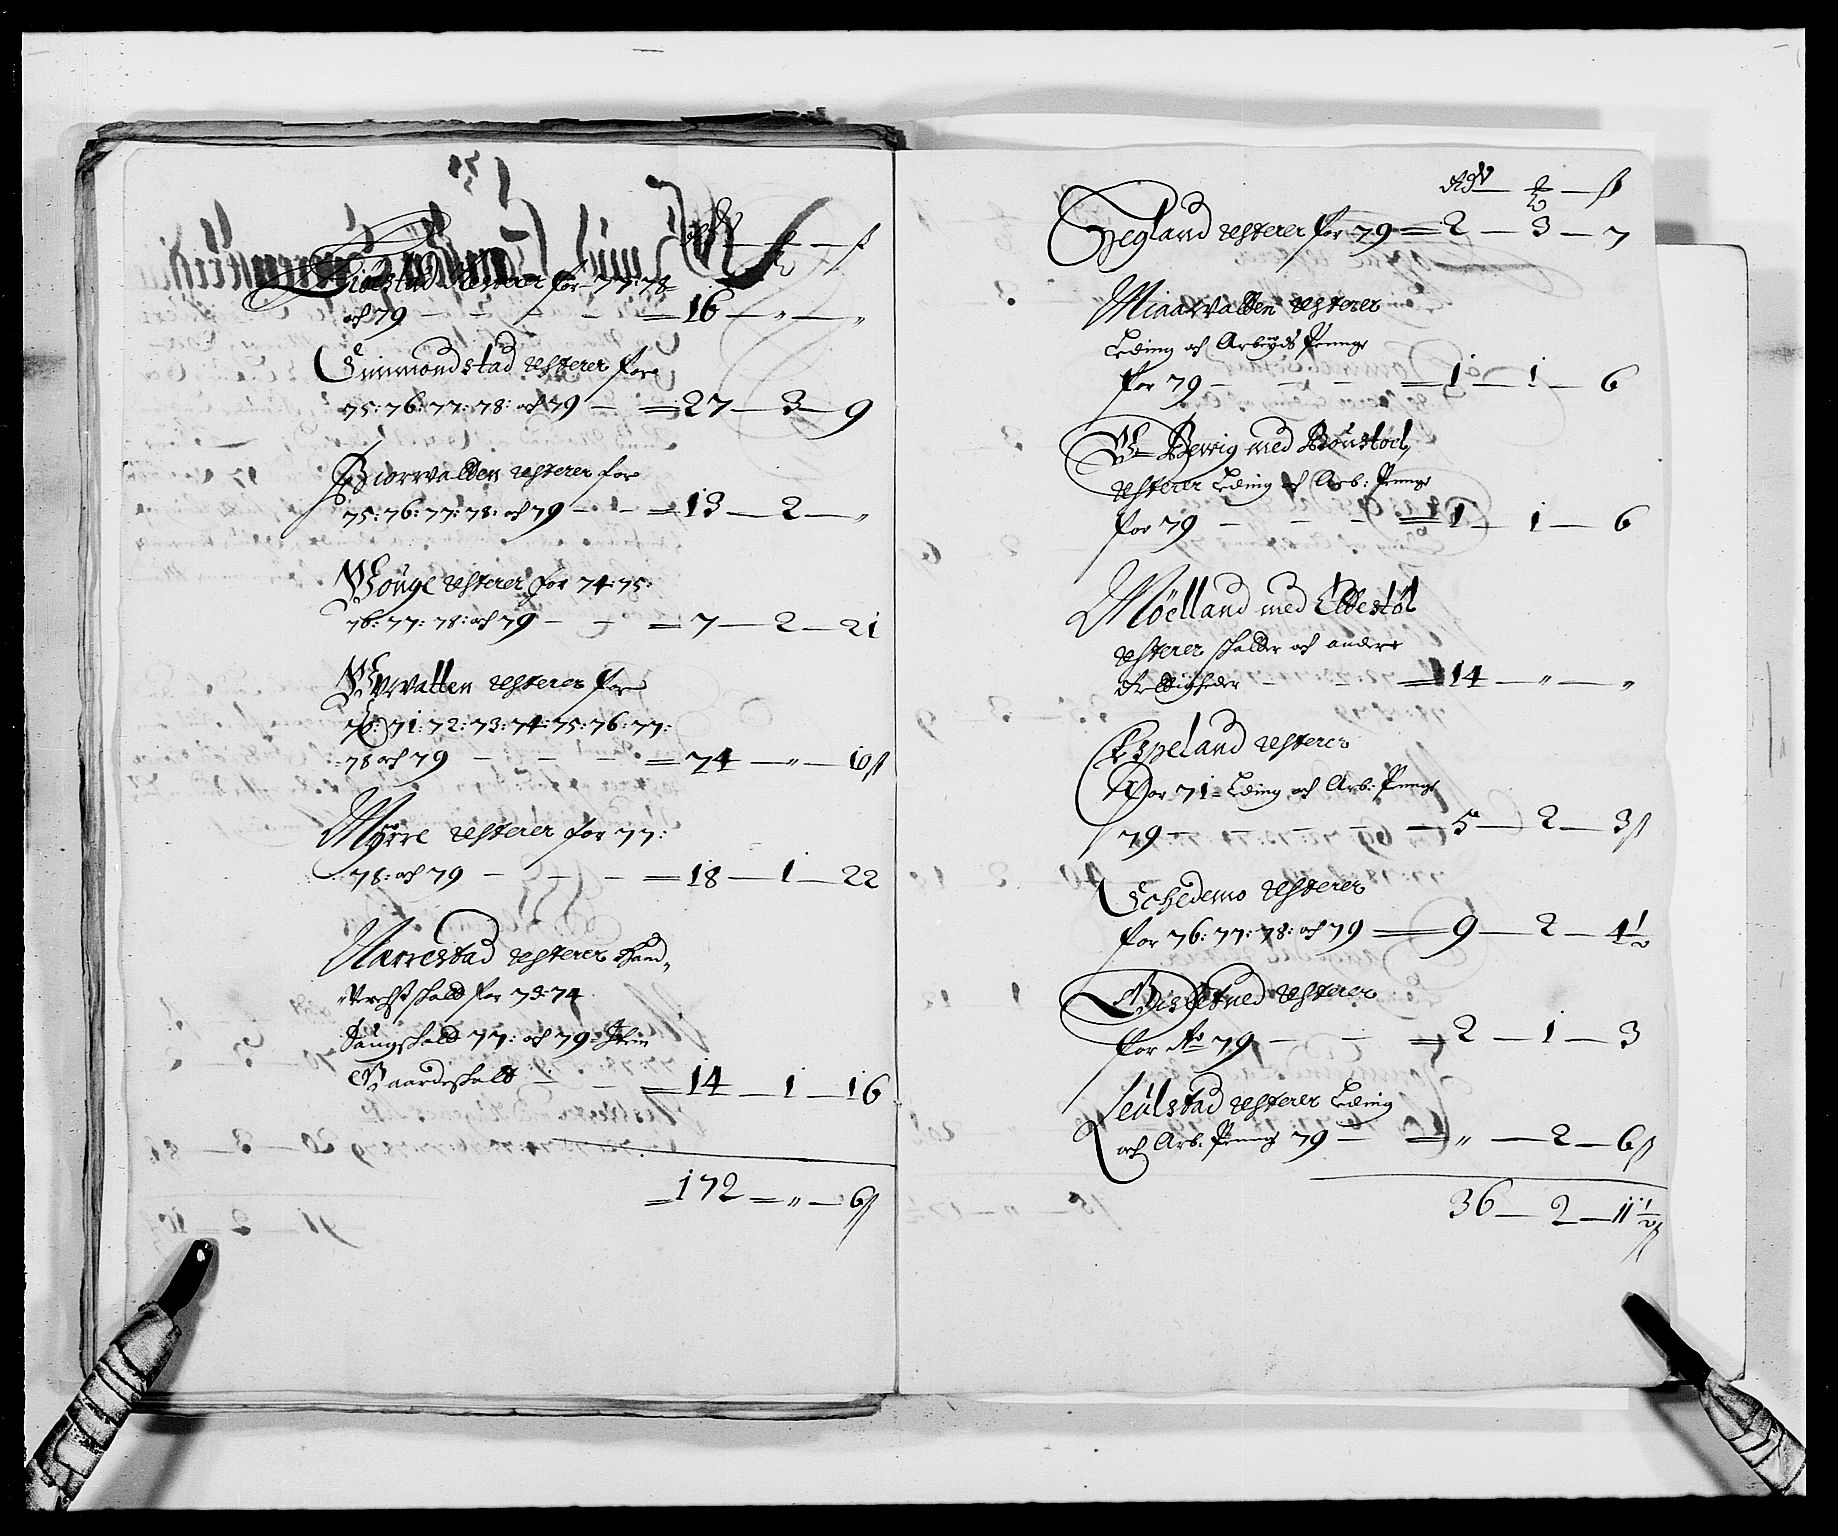 Rdr — ort — ß
Giøestad Resterer for 77: 78
och 79 — — — — = 16 — „ — „
Simmondstad Resterer for
75: 76: 77: 78: och 79 — = 27 — 3 — 9
Biorvatten Resterer for
75: 76: 77: 78: och 79 — — = 13 — 2 — „
Wouge Resterer for 74: 75:
76: 77: 78: och 79 — — = 7 — 2 — 21
Resterer for
70: 71: 72: 73: 74: 75: 76: 77:
78 och 79 — — — = 74 — „ — 10ß
Myrre Resterer for 77:
78: och 79 — — — = 18 — 1 — 22
Nærrestad Resterer
schatt for 73: 74
77: och 79
Gaardeschatt — — = 14 — 1 — 16
= 172 = „ — 6ß
Rdr — ort — ß
Hegland Resterer for 79 = 2 — 3 — 7
Miaawatten Resterer
Leding och Arbejds Penge
for 79 — — — = 1 — 1 — 6
Berrig med Boustoel
Resterer Leding och Arb: Penge
for 79 — — — = 1 — 1 — 6
Möelland med Eldestöl
Resterer schatter och andere
Rettigheder — — = 14 — „ — „
Espeland Resterer
For 71 = Leding och Arb: Penge
79 — — — — — 5 — 2 — 3ß
Schedemo Resterer
for 76: 77: 78: och 79 = 9 — 2 — 4 1/2
Gisletued Resterer
for Ao 79 — — = 2 — 1 — 3
Seulstad Resterer Leding
och Arb: Penge 79 — = „ — 2 — 6ß
36 — 2 — 11 1/2 ß